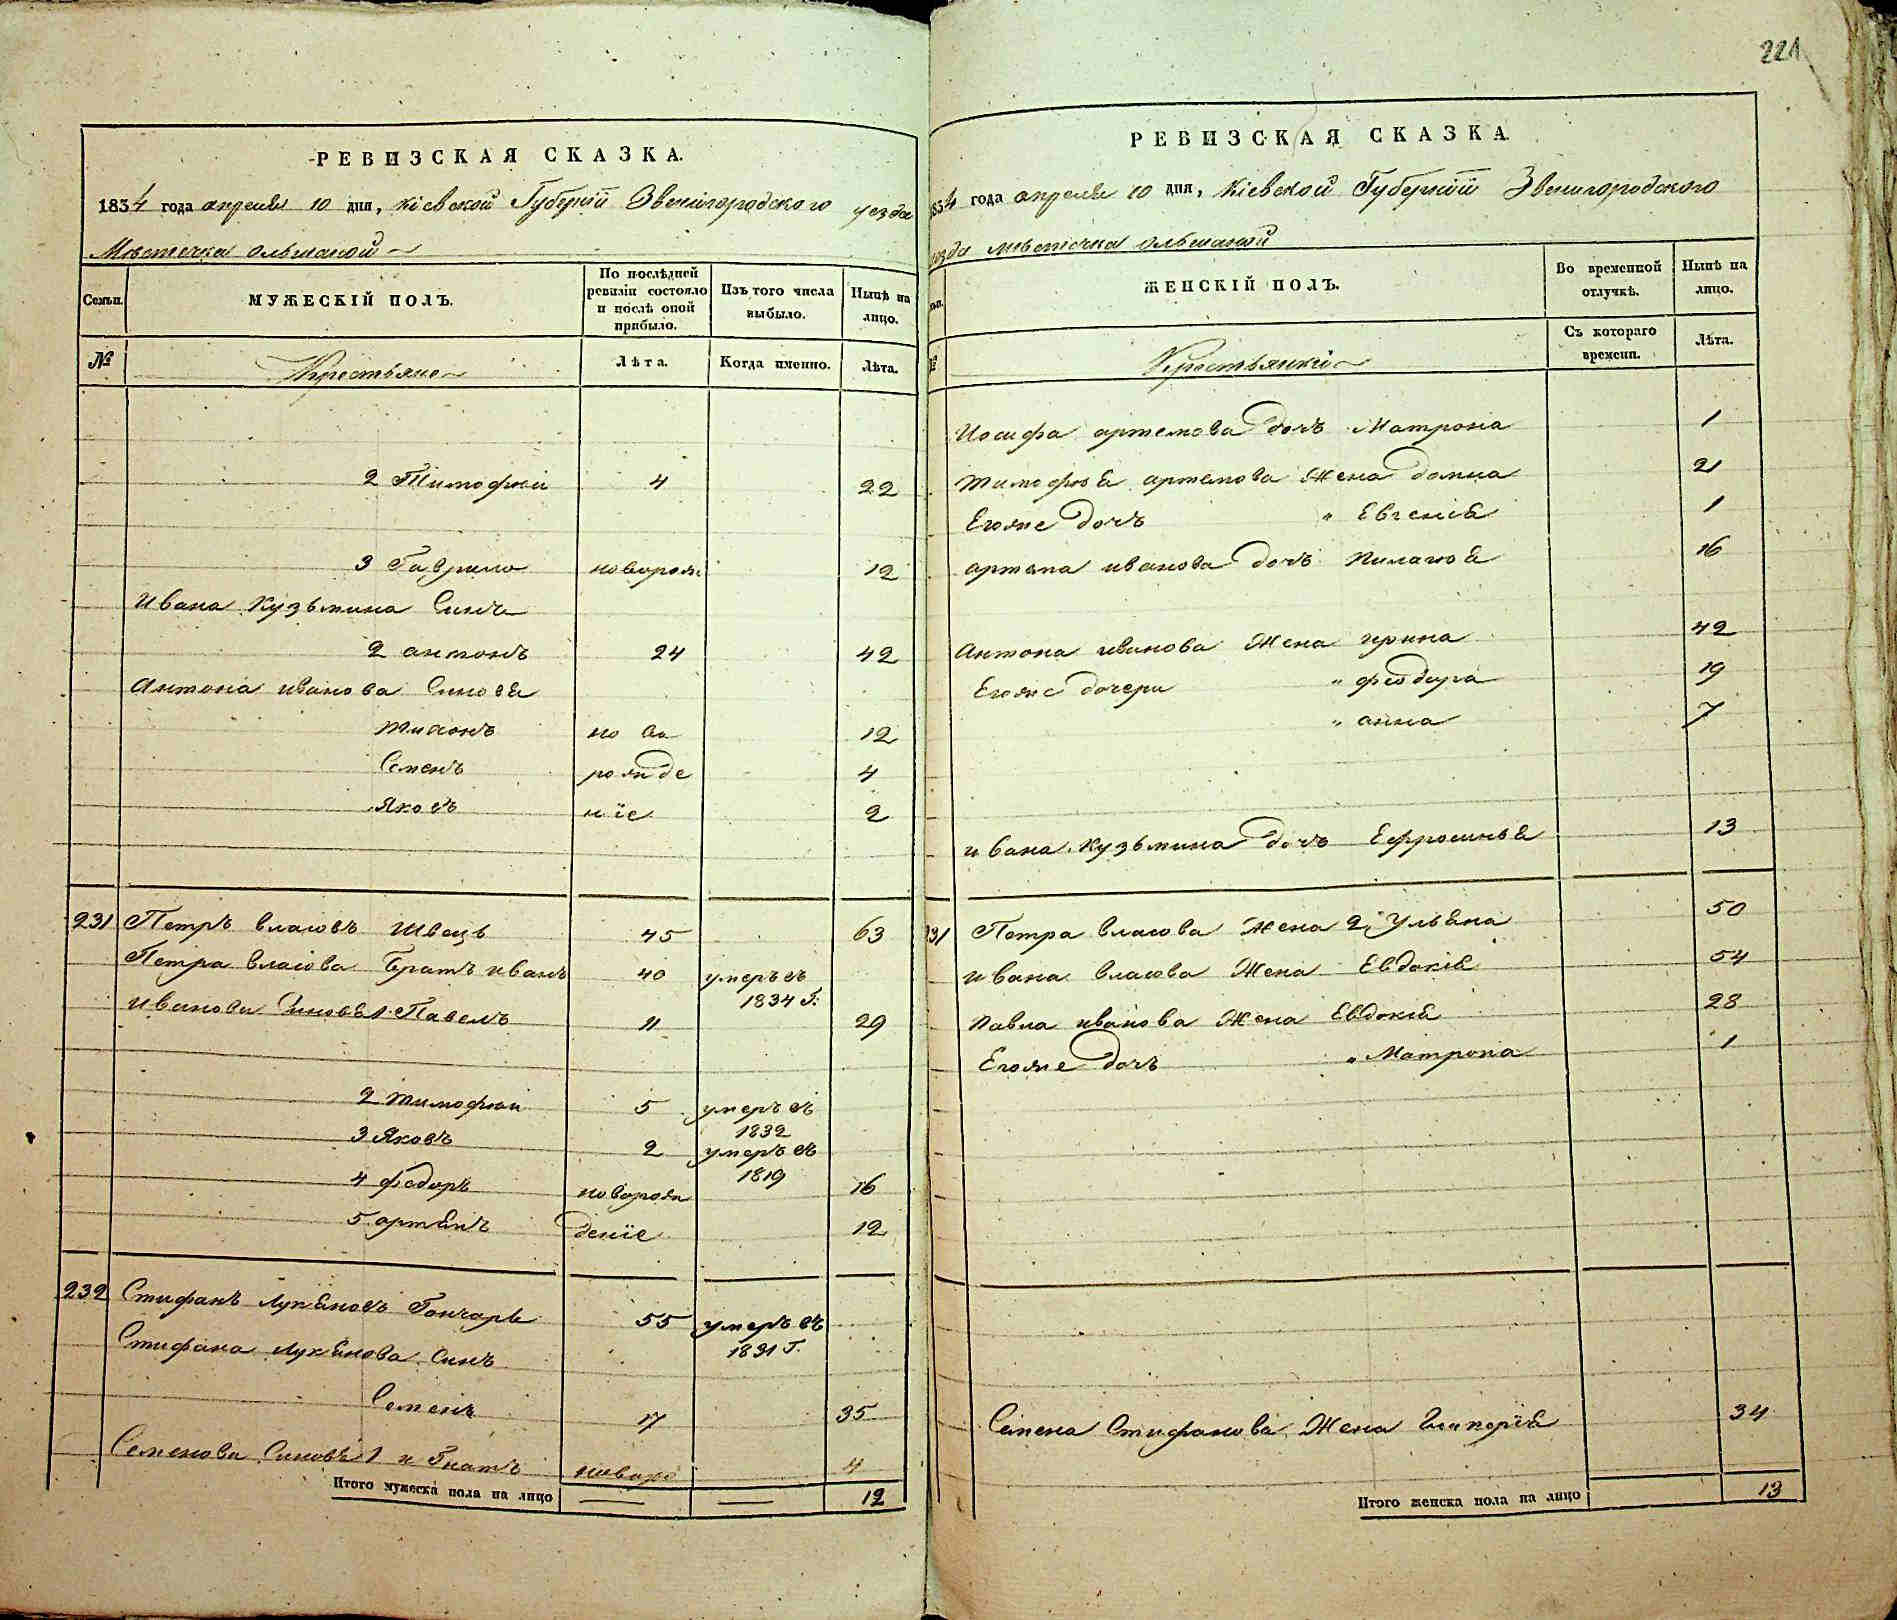 РЕВИЗСКАЯ СКАЗКА.
1834 года апреля 10 дня, Кіевской Губерніи Звенигородского уезда
Мѣстечка Ольшаной
Семьи.
МУЖЕСКІЙ ПОЛЪ.
По послѣдней ревизіи состояло и послѣ оной прибыло.
Изъ того числа выбыло.
Нынѣ на лицо.
№
Крестьяне
Лѣта.
Когда именно.
Лѣта.
2 Тимофей 4 22
3 Гаврило новорож 12
Ивана Кузьмина Синъ
2 антонъ 24 42
Антона иванова Синовя
Тихонъ но во 12
Семенъ рожде 4
Яковъ ніе 2
231 Петръ власовъ Швецъ 45 63
Петра власова Братъ иванъ 40 умеръ въ
1834 Г.
иванови Синовя 1 Павелъ 11 29
2 тимофей 5 умеръ въ
1832
3 Яковъ 2 умеръ въ
1819
4 федоръ новорож 16
5 артемъ деніе 12
232 Стифанъ Лукяновъ Гончаръ 55 умеръ въ
1831 Г.
Стифана Лукянова Синъ
Семенъ 17 35
Семенови Синовя 1 й Гнатъ новоро 4
Итого мужеска пола на лицо 12
221
РЕВИЗСКАЯ СКАЗКА
1834 года апреля 10 дня, Кіевской Губерніи Звенигородского
уезда мѣстечка Ольшаной
ЖЕНСКІЙ ПОЛЪ.
Во временной отлучкѣ.
Нынѣ на лицо.
№
Крестьянки
Съ котораго времени.
Лѣта.
Иосифа артемова дочъ Матрона 1
Тимофея артемова Жена домна 21
Егоже дочъ " Евгения 1
артема иванова дочъ Пилагея 16
Антона иванова Жена ирина 42
Егоже дочери " феодора 19
" анна 7
ивана Кузьмина дочъ Ефросинья 13
231 Петра власова Жена 2я Ульяна 50
ивана власова Жена Евдокія 54
Павла иванова Жена Евдокія 28
Егоже дочъ " Матрона 1
Семена Стифанова Жена Гликерія 34
Итого женска пола на лицо 13